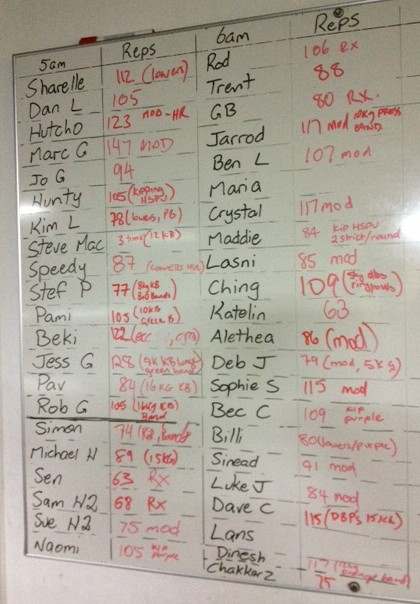 5am Reps
Sharelle 112 (lower)
Dan L 105
Hutcho 123 MOD-HR
Marc G 147 MOD
Jo G 94
Hunty 105 (kipping HSPU)
Kim L 78 (lower, PB)
Steve Mac (12KB)
Speedy 87
Stef P 77 (8kg KB
Pami 103 (10KB green B)
Beki 122
Jess G 128
Pav 84 (16KG KB)
Rob G 105 (16kg KB) Band
Simon 74
Michael H 89 (15kg)
Sen 63 Rx
Sam H2 68 Rx
Sue H2 75 mod
Naomi 105 KIP Purple
6am Reps
Rod 106 RX
Trent 88
GB 80 RX.
Jarrod 117 mod 10kg PRESS BAND
Ben L 107 mod
Maria
Crystal 117 mod
Maddie 84 KIP HSPU 2 strict/round
Lasni 85 mod
Ching 109
Katelin 63
Alethea 86 (mod)
Deb J 79 (mod, 5KG)
Sophie S 115 mod
Bec C 109 KIP purple
Billi 80 (lowers/purple)
Sinead 91 mod
Luke J 84 mod
Dave C 115 (DBPs 15KG)
Lans
Dinesh 117
Chakkarz 75